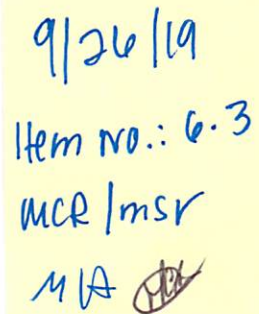 9/26/19
Item No.: 6.3
MCR/msr
M/A